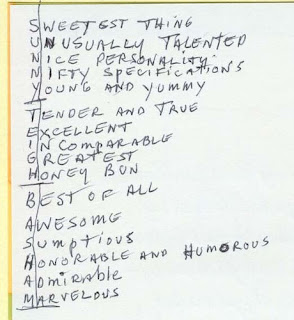 SWEETEST THING
UNUSUALLY TALENTED
NICE PERSONALITY
NIFTY SPECIFICATIONS
YOUNG AND YUMMY
TENDER AND TRUE
EXCELLENT
INCOMPARABLE
GREATEST
HONEY BUN
BEST OF ALL
AWESOME
SUMPTIOUS
HONORABLE AND HUMOROUS
ADMIRABLE
MARVELOUS